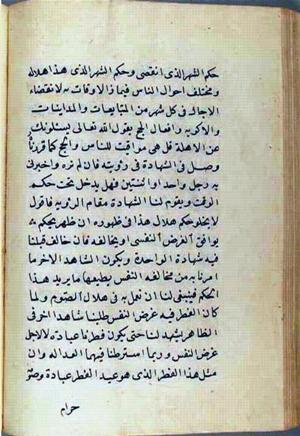 حكم الشهر الذى انقضى وحكم الشهر الذى هذا هلاله
ومختلف احوال الناس فيما ذا الاوقات به لانقضاء
الاجال فى كل شهر من المتابعات والمداينات
والاكرية وافعال الحج يقول الله تعالى يسئلونك
عن الاهلة قل هى مواقيت للناس والحج كما قررناه
وصل فى الشهادة فى رؤيته فان لم نره واخبرنى
به رجل واحد او اثنتين فهل يدخل تحت حكم
الوقت ويقوم لنا الشهادة مقام الرؤية فاقول
لا يخلو حكم هلال هذا فى ظهوره ان ظهر بحكم ما
يوافق الغرض النفسى او يخالفه فان خالف قبلنا
فيه شهادة الواحدة ويكون الشاهد الاخر ما
امرنا به من مخالفة النفس بطبعها ما يريد هذا
الحكم فينبغى لنا ان نعمل به فى هلال الصوم ولما
كان الفطر فيه غرض النفس طلبنا شاهدا اخر فى
الظاهر يشهد لنا حتى يكون فطرنا عبادة لا لاجل
غرض النفس وربما اشترطنا فيهما العدالة وان
مثل هذا الفطر الذى هو عيد الفطر عبادة وصوم
حرام